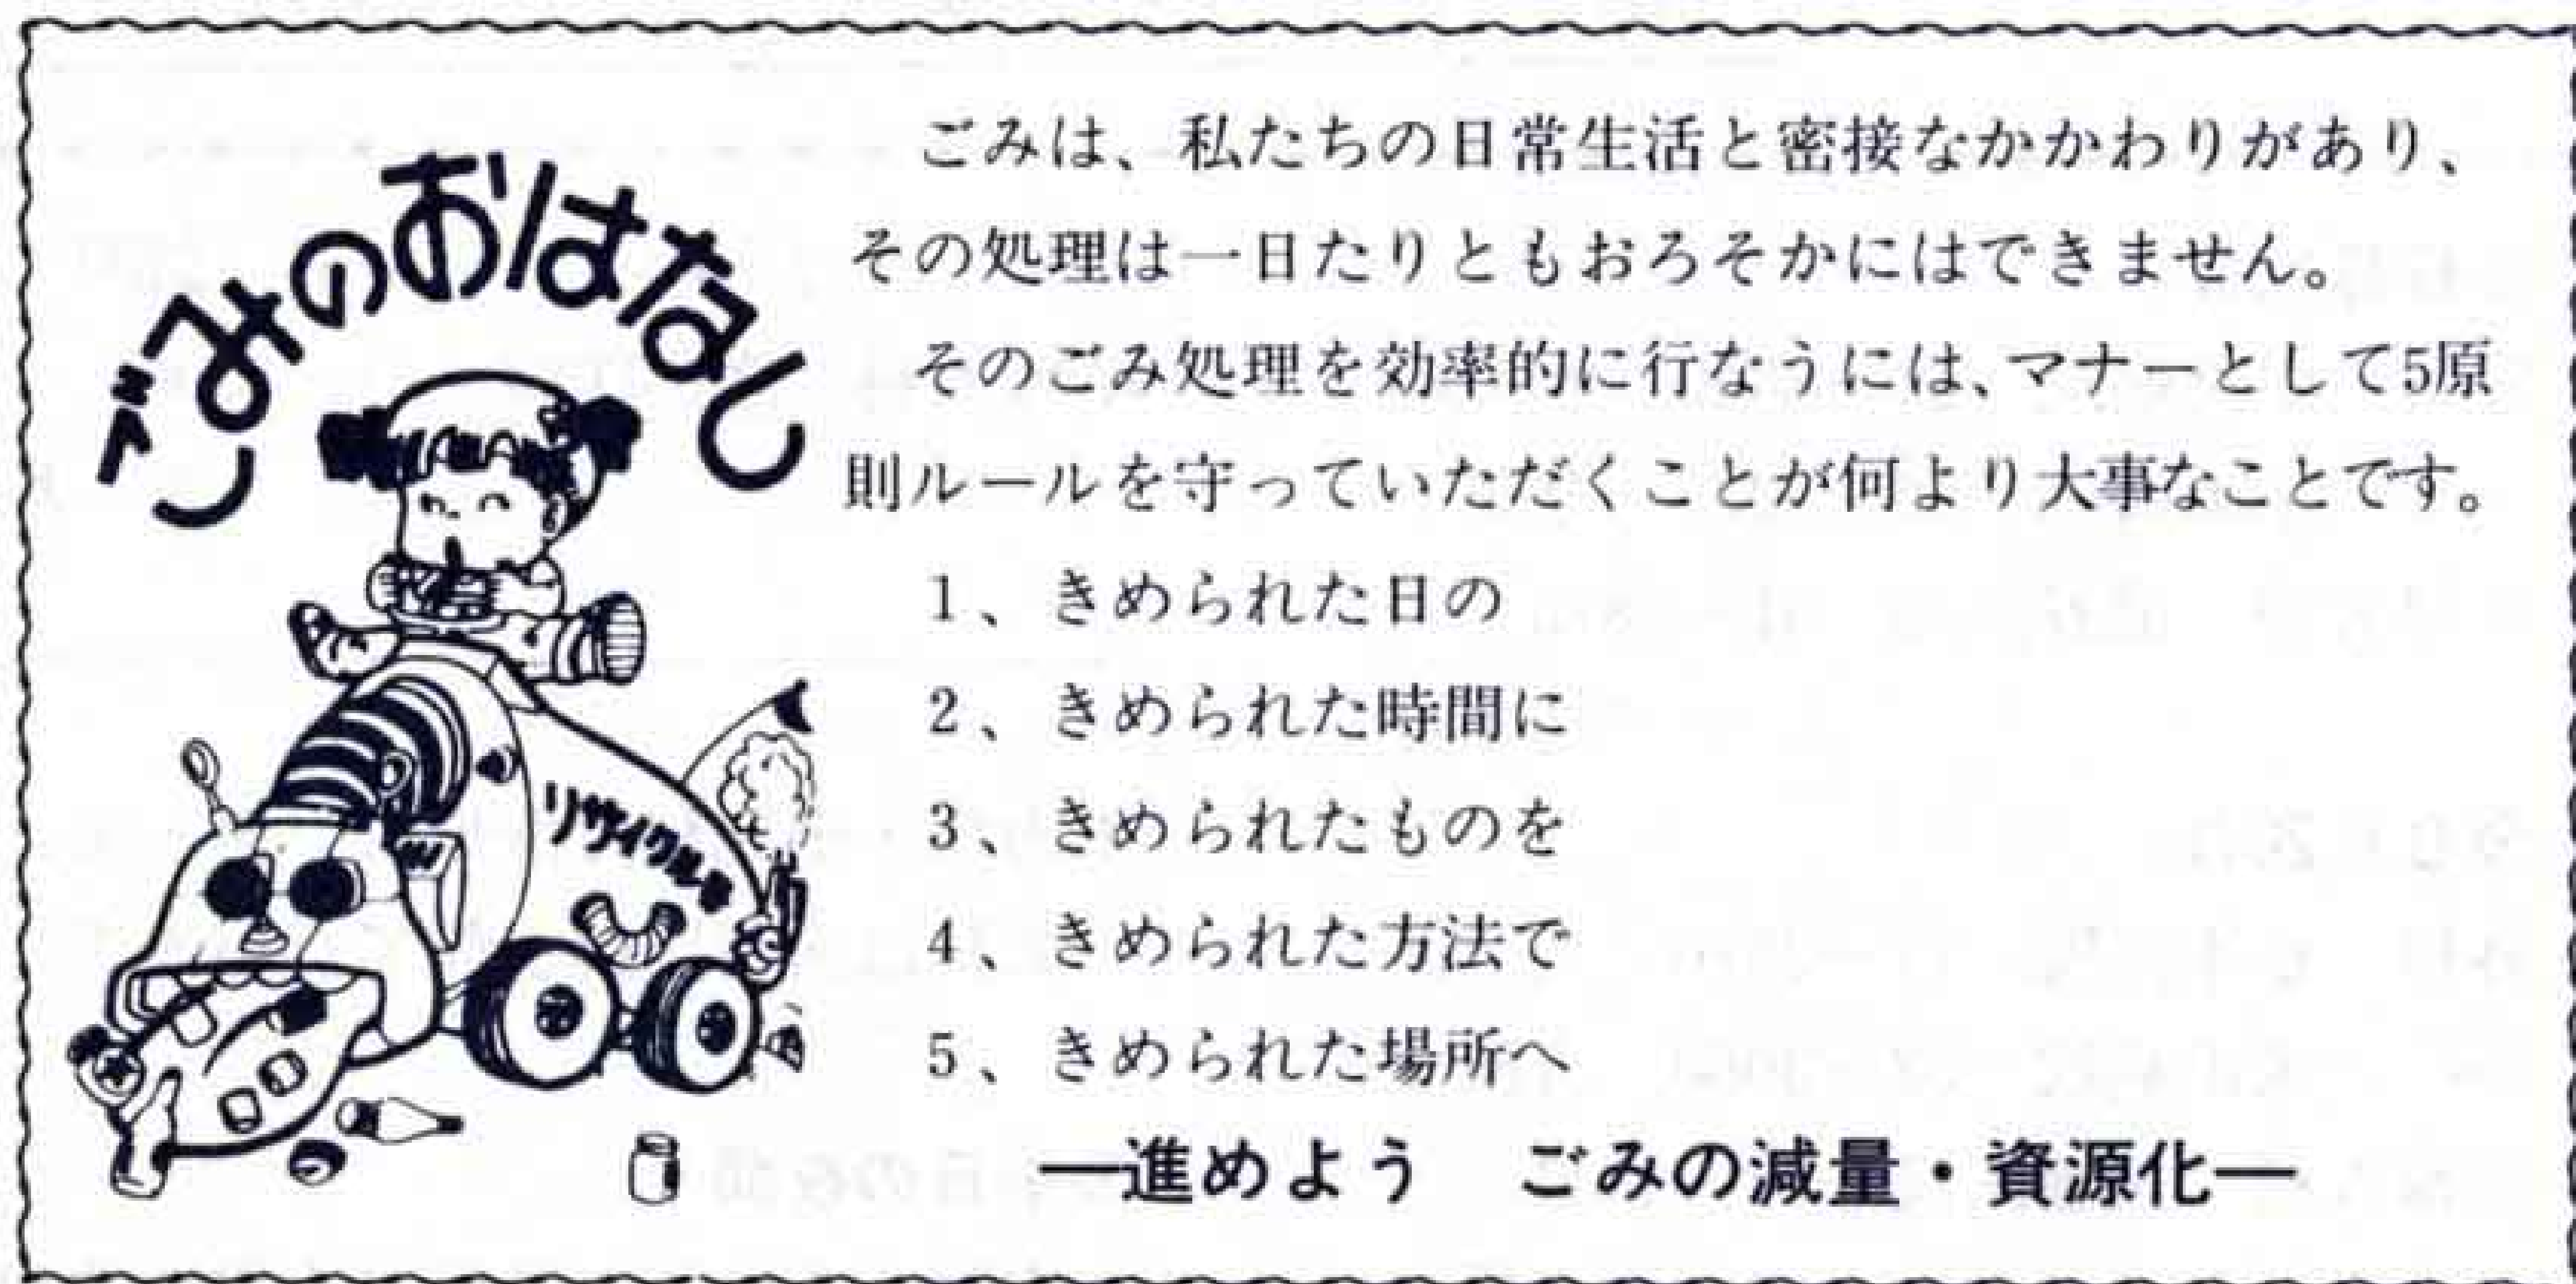 ごみのおはなし
ごみは、私たちの日常生活と密接なかかわりがあり、
その処理は一日たりともおろそかにはできません。
そのごみ処理を効率的に行なうには、マナーとして5原
則ルールを守っていただくことが何より大事なことです。
1、きめられた日の
2、きめられた時間に
3、きめられたものを
4、きめられた方法で
5、きめられた場所へ
―進めよう　ごみの減量・資源化―
リサイクル